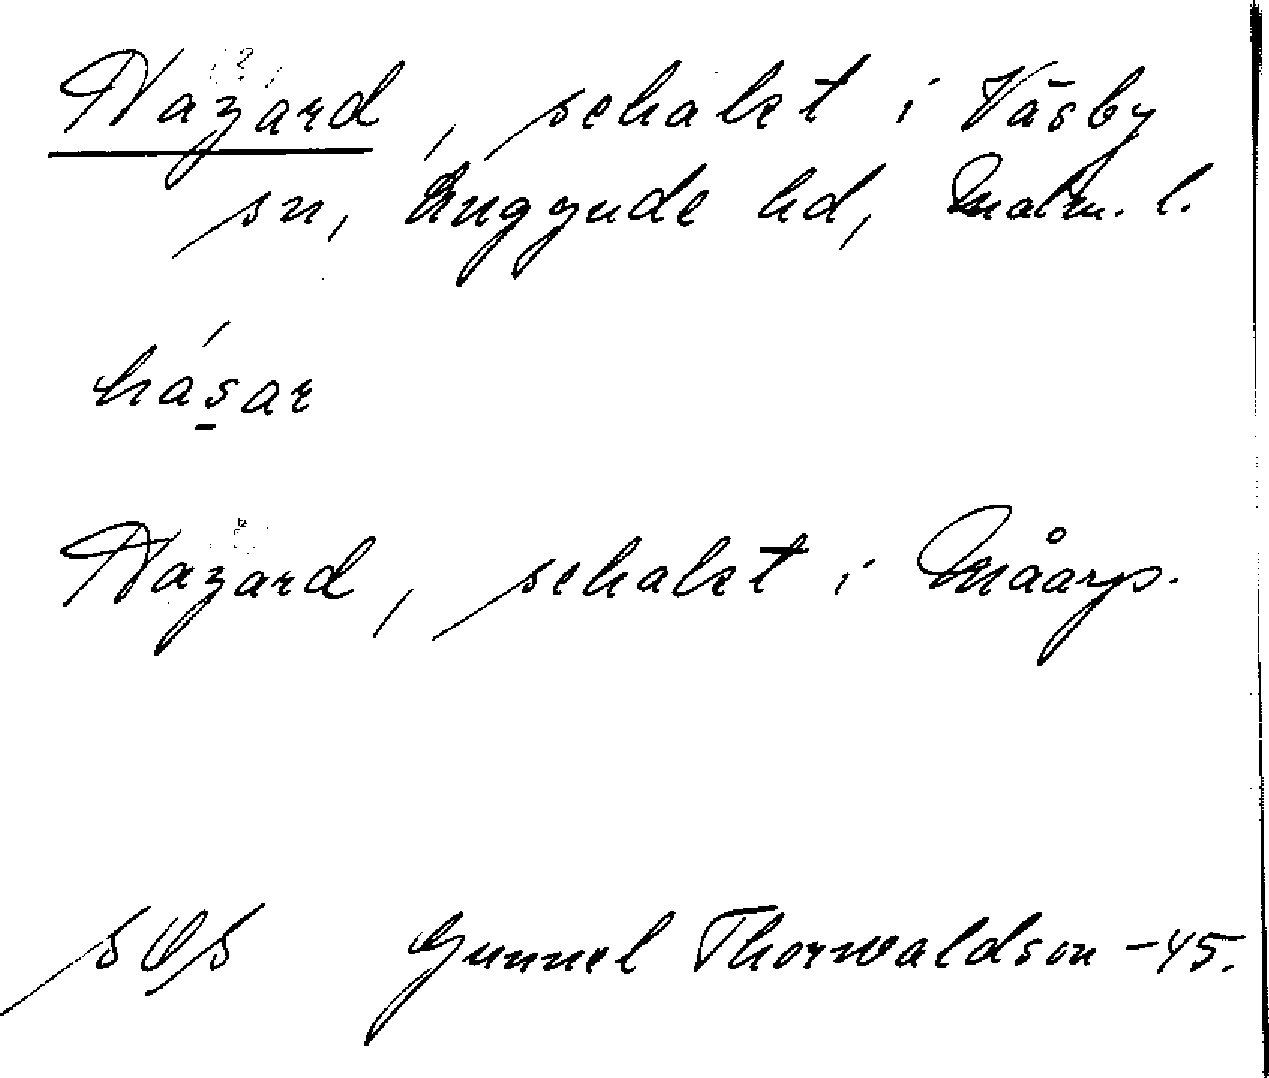 Hazard, schakt i Väsby
sn, Luggude hd, Malm. l.
hásar
Hazard, schakt i Måarp.
Gunnel Thorwaldson -45.